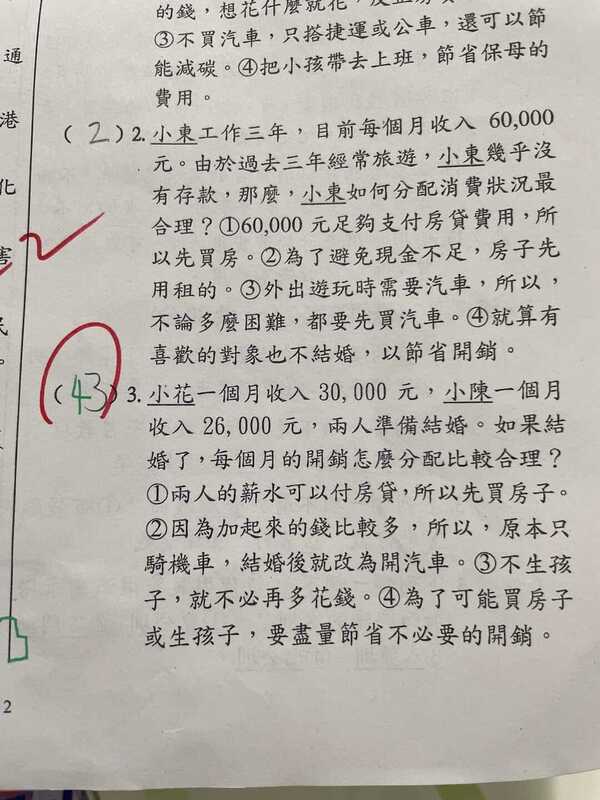 的錢，想花什麼就花，
③不買汽車，只搭捷運或公車，還可以節
能減碳。④把小孩帶去上班，節省保母的
費用。
(2) 2. 小東工作三年，目前每個月收入 60,000
元。由於過去三年經常旅遊，小東幾乎沒
有存款，那麼，小東如何分配消費狀況最
合理？①60,000 元足夠支付房貸費用，所
以先買房。②為了避免現金不足，房子先
用租的。③外出遊玩時需要汽車，所以，
不論多麼困難，都要先買汽車。④就算有
喜歡的對象也不結婚，以節省開銷。
(43) 3. 小花一個月收入 30,000 元，小陳一個月
收入 26,000 元，兩人準備結婚。如果結
婚了，每個月的開銷怎麼分配比較合理？
①兩人的薪水可以付房貸，所以先買房子。
②因為加起來的錢比較多，所以，原本只
騎機車，結婚後就改為開汽車。③不生孩
子，就不必再多花錢。④為了可能買房子
或生孩子，要盡量節省不必要的開銷。
通
港
化
害
民
。
2